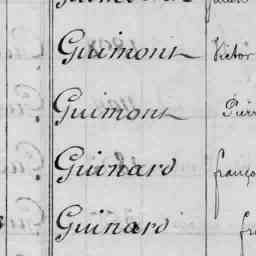 Guimont Victor
Guimont Pierr
Guinard franço
Guinard fr